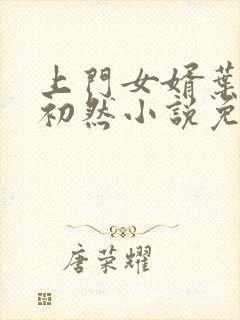 上門女婿葉
初然小説免
唐荣耀